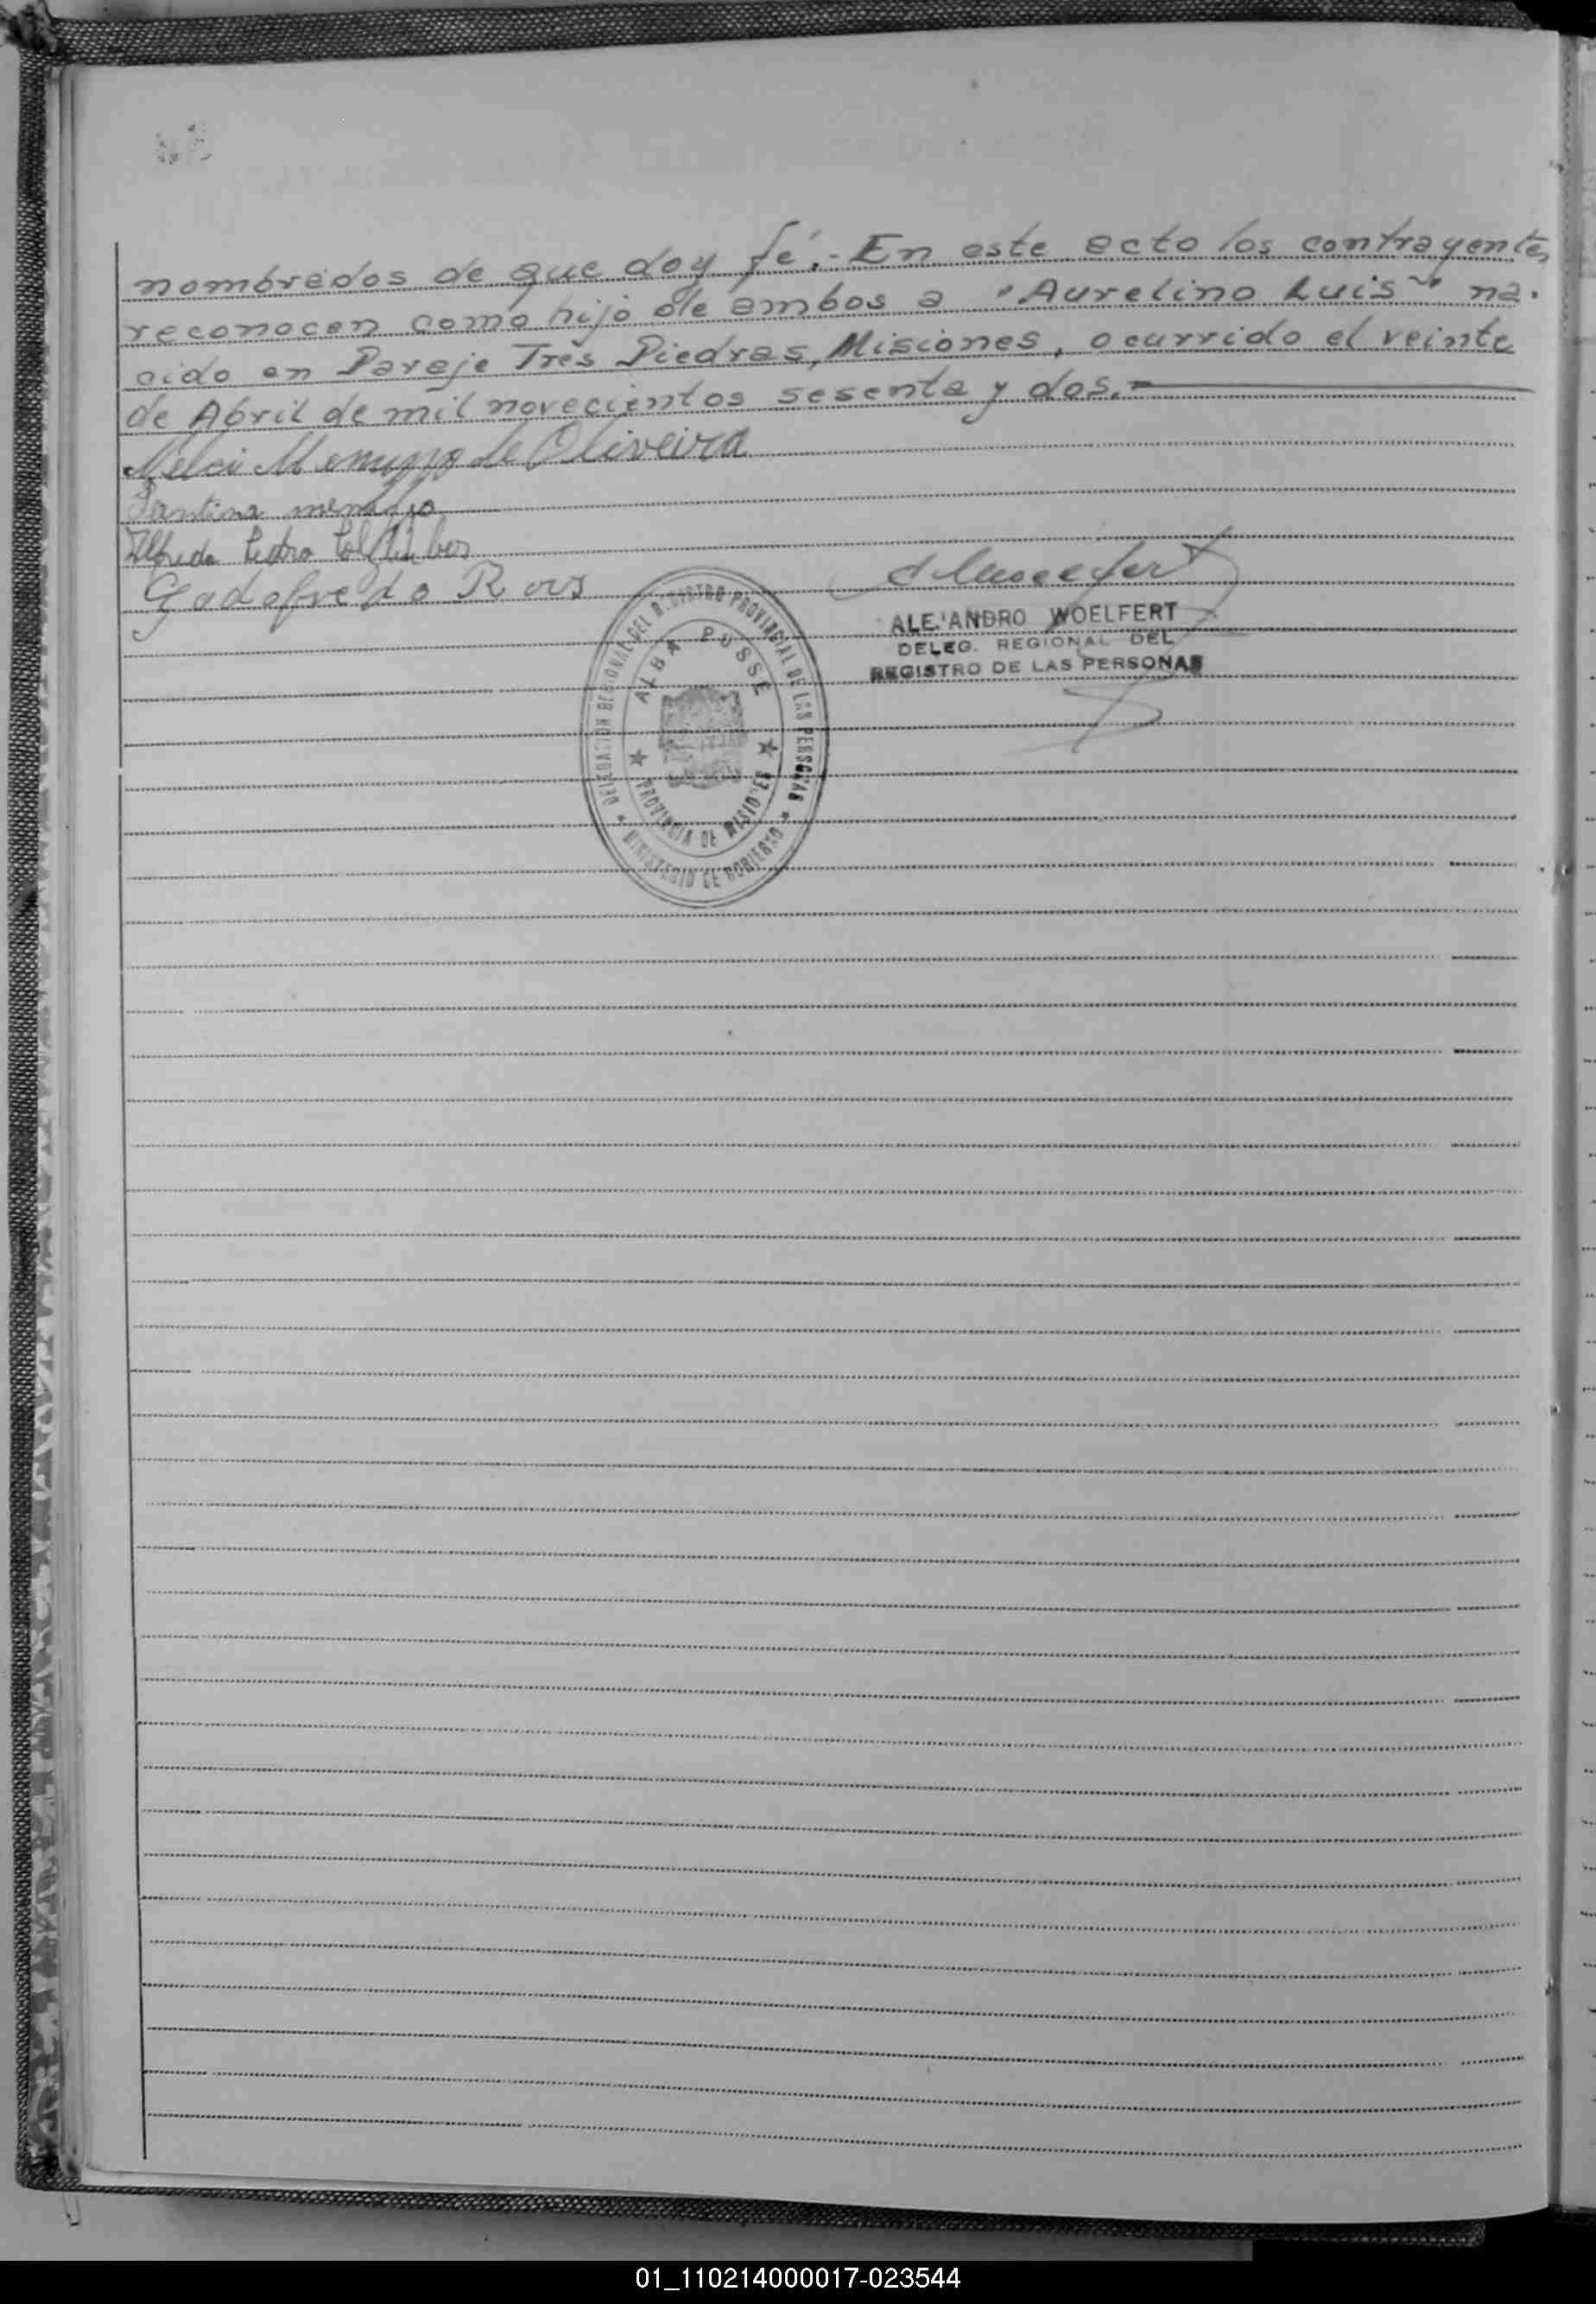 nombrados de que doy fé.- En este acto los contrayentes
reconocen como hijo de ambos a "Aurelino Luis" na-
cido en Paraje Tres Piedras, Misiones, ocurrido el veinte
de Abril de mil novecientos sesenta y dos.-
de Oliveira
Santina
Alfredo Pedro
Godofredo R
ALEJANDRO WOELFERT
DELEG. REGIONAL DEL
REGISTRO DE LAS PERSONAS
DELEGACION REGIONAL DEL REGISTRO PROVINCIAL DE LAS PERSONAS
ALBA POSSE
PROVINCIA DE MISIONES
MINISTERIO DE GOBIERNO
01_110214000017-023544